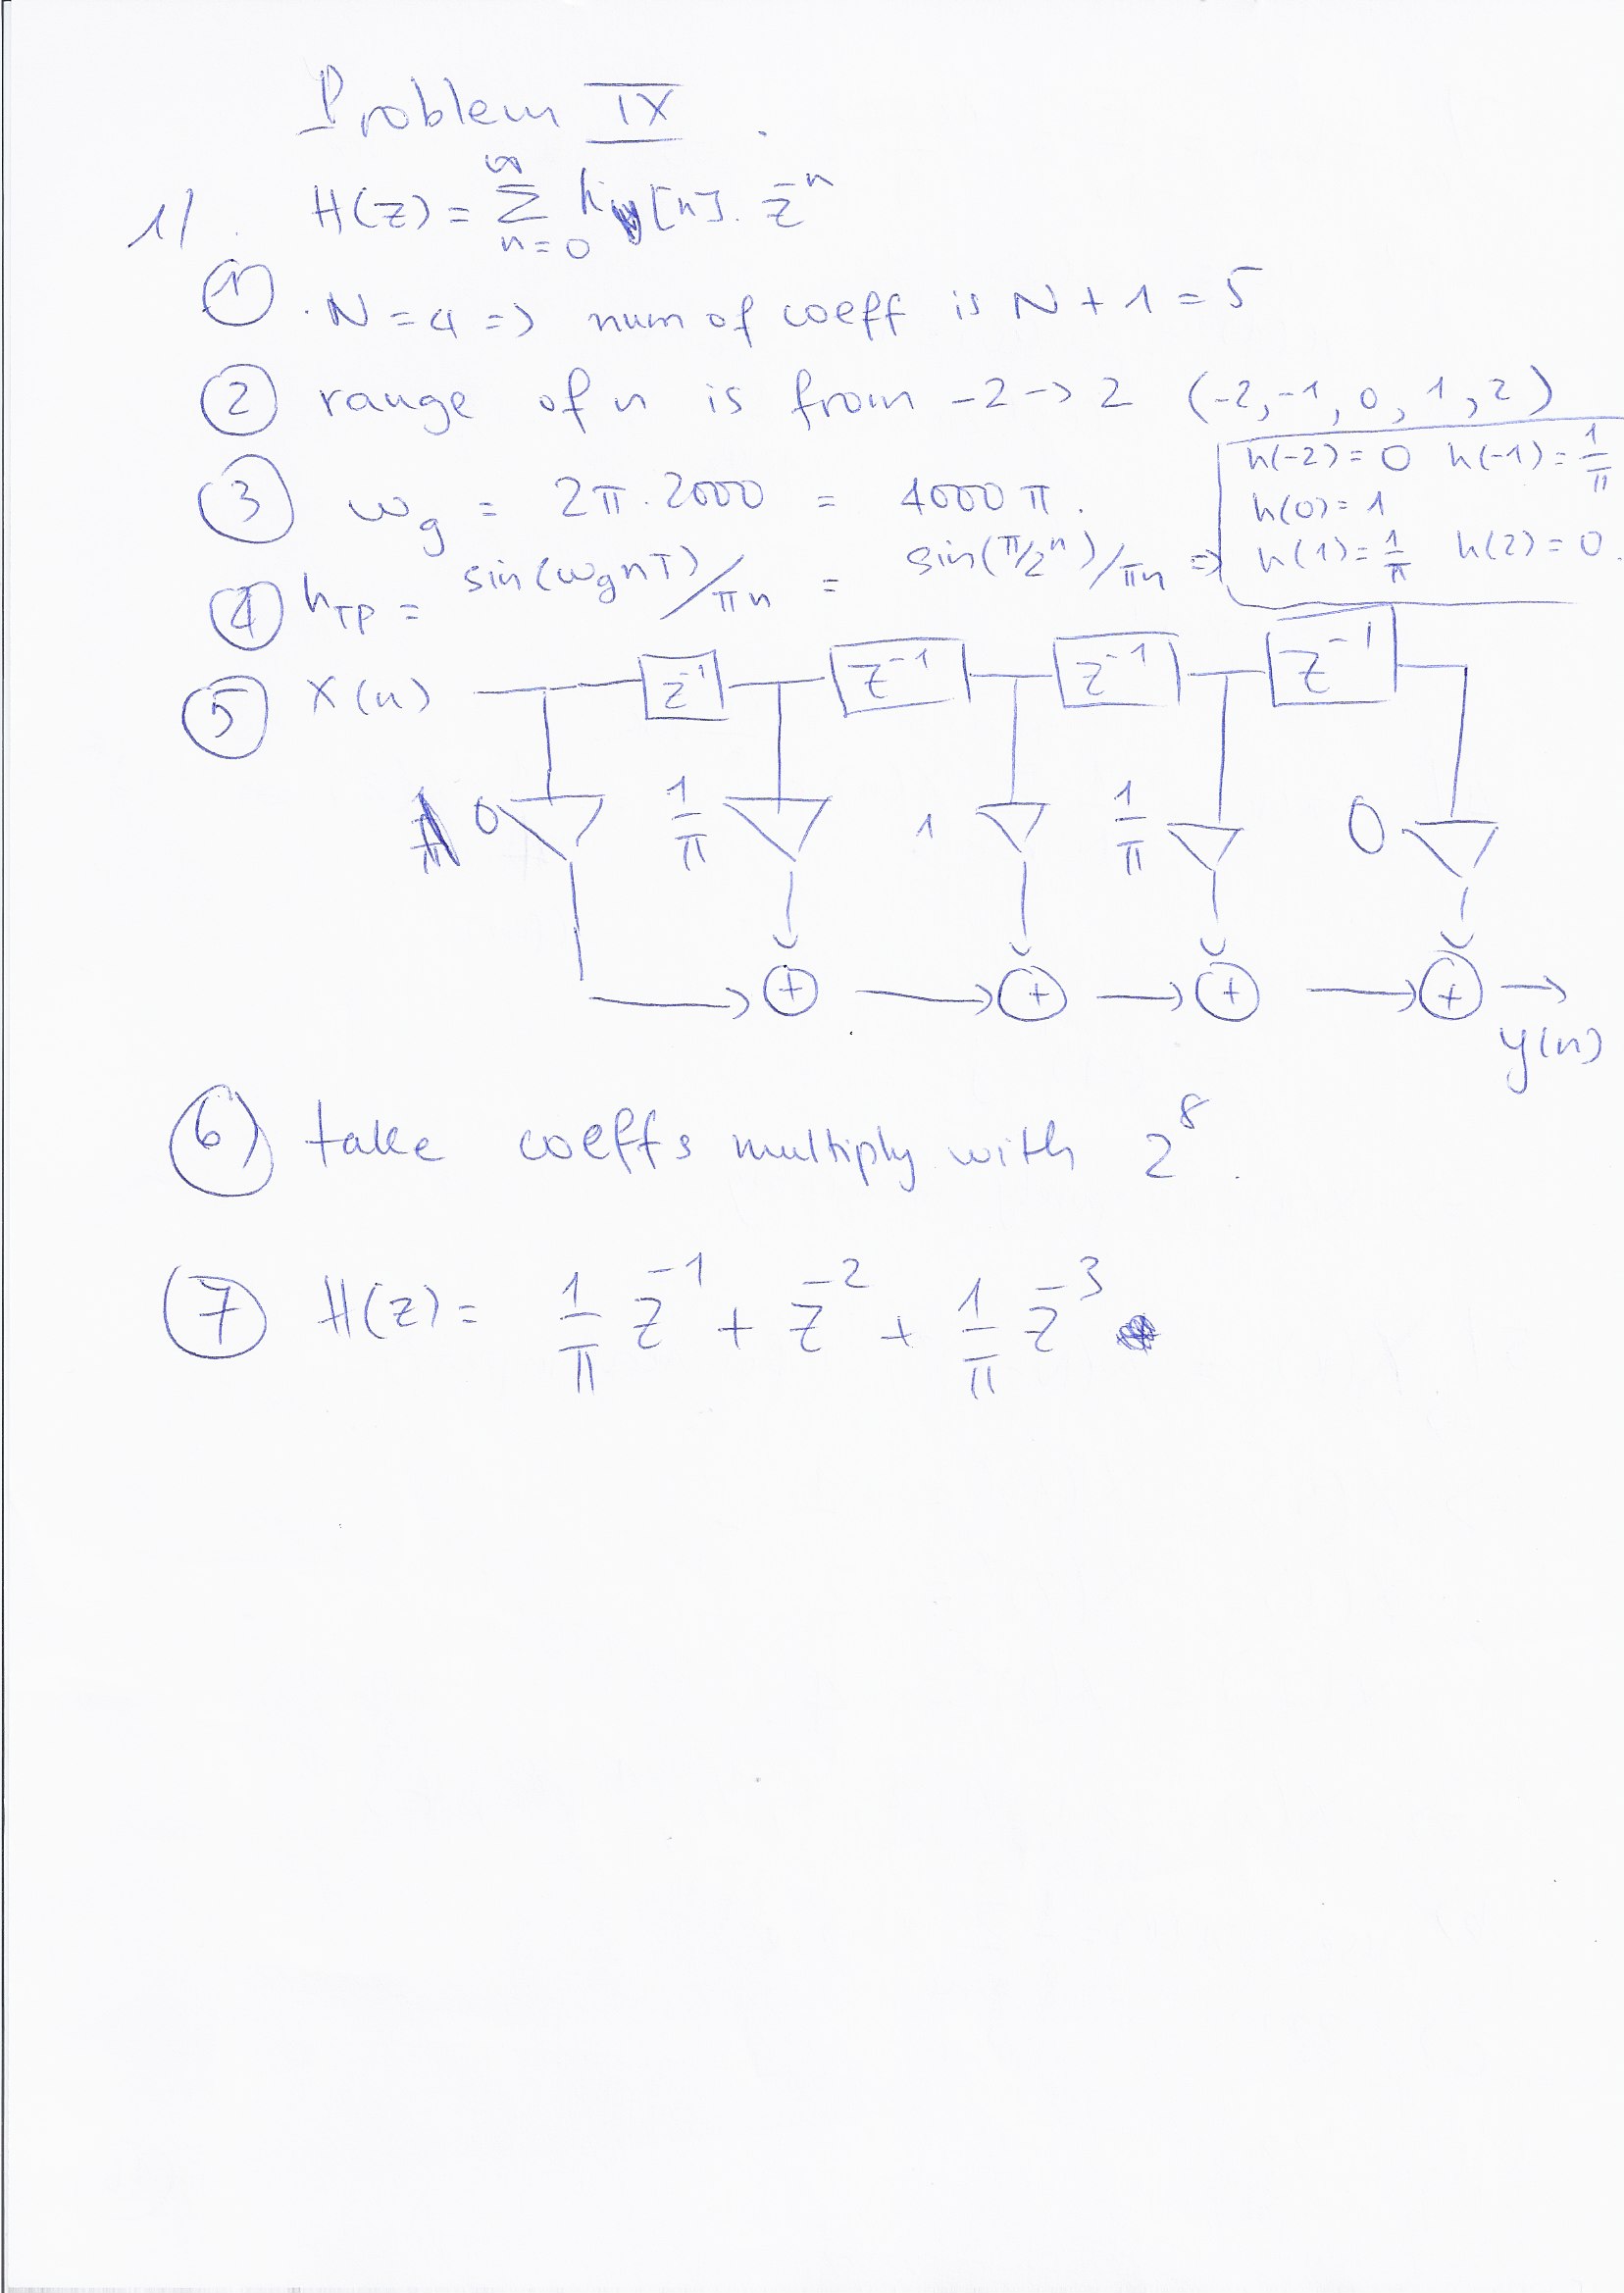 Problem IX
1/. H(z) = ∞ Σ n=0 h[n]. z^-n
① . N = 4 => num of coeff is N + 1 = 5
② range of n is from -2 -> 2 (-2, -1, 0, 1, 2)
③ ωg = 2π.2000 = 4000 π.
④ hTP = sin(ωgnT)/πn = sin(π/2 n)/πn =>
h(-2) = 0 h(-1) = 1/π
h(0) = 1
h(1) = 1/π h(2) = 0.
⑤ X(n) z^-1 z^-1 z^-1 z^-1
0 1/π 1 1/π 0
+ + + +
y(n)
⑥ take coeffs multiply with 2^8.
⑦ H(z) = 1/π z^-1 + z^-2 + 1/π z^-3